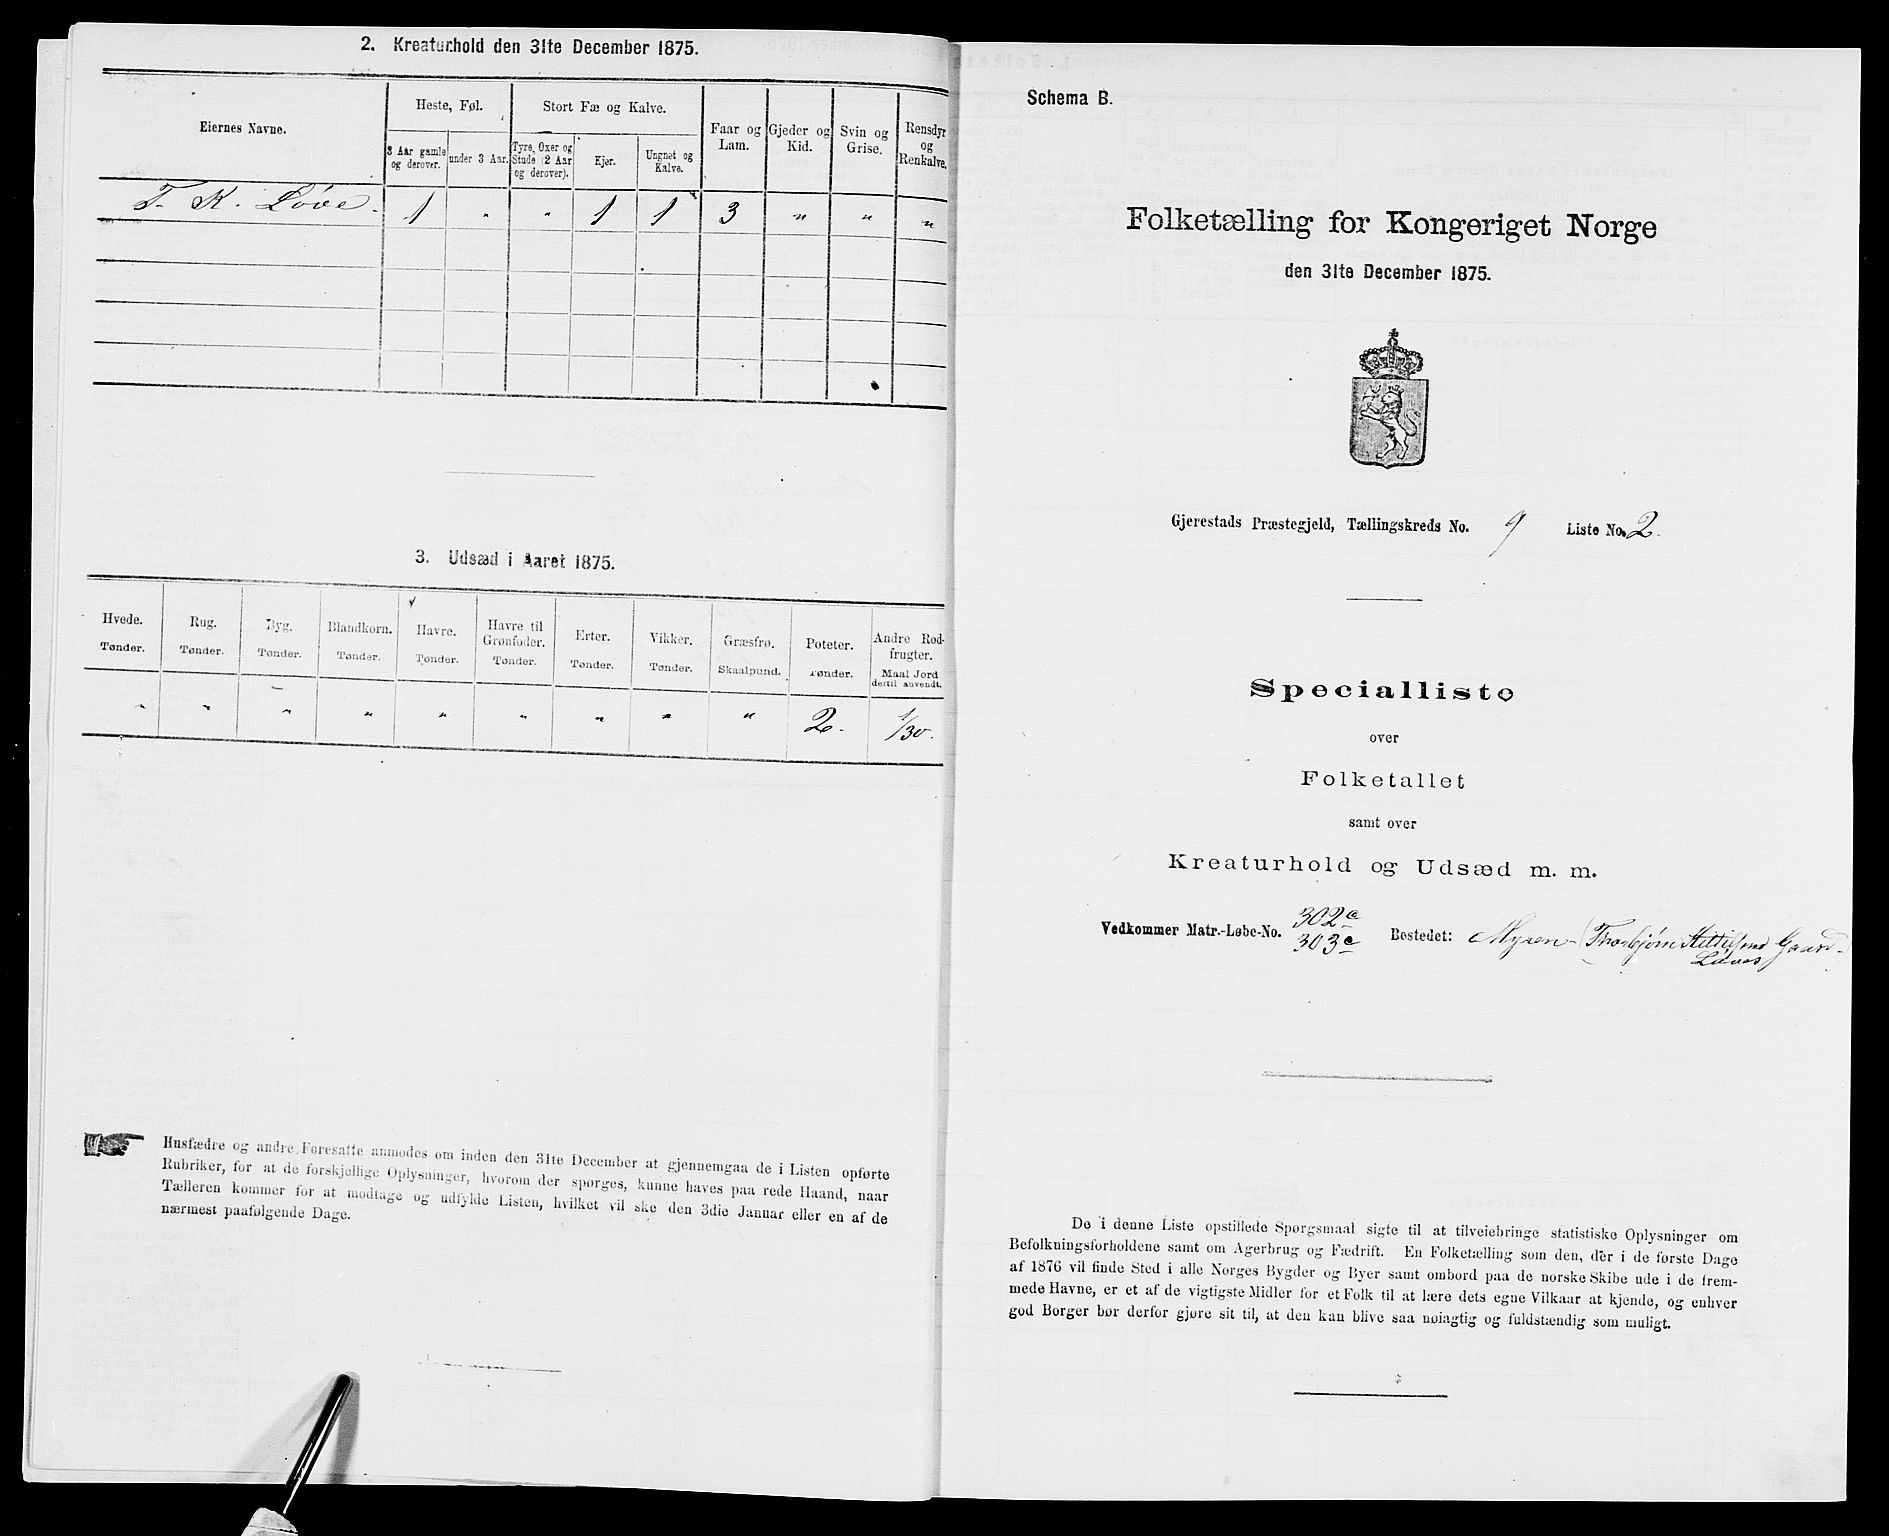 2. Kreaturhold den 31te December 1875.
Eiernes Navne.
Heste, Føl.
Stort Fæ og Kalve.
Faar og Lam.
Gjeder og Kid.
Svin og Grise.
Rensdyr og Renkalve.
3 Aar gamle og derover.
under 3 Aar.
Tyre, Oxer og Stude (2 Aar og derover).
Kjer.
Ungnet og Kalve.
T. K. Løve. 1 " " 1 1 3 " " "
3. Udsæd i Aaret 1875.
Hvede. Rug. Byg. Blandkorn. Havre. Havre til Grønfoder. Erter. Vikker. Græsfrø. Poteter. Andre Rodfrugter.
Tønder. Tønder. Tønder. Tønder. Tønder. Tønder. Tønder. Tønder. Skaalpund. Tønder. Maal Jord dertil anvendt.
" " " " " " " " " 2. 1/30.
Husfædre og andre Foresatte anmodes om inden den 31te December at gjennemgaa de i Listen opførte
Rubriker, for at de forskjellige Oplysninger, hvorom der spørges, kunne haves paa rede Haand, naar
Tælleren kommer for at modtage og udfylde Listen, hvilket vil ske den 3die Januar eller en af de
nærmest paafølgende Dage.
Schema B.
Folketælling for Kongeriget Norge
den 31te December 1875.
Gjerestads Præstegjeld, Tællingskreds No. 9 Liste No. 2.
Specialliste
over
Folketallet
samt over
Kreaturhold og Udsæd m. m.
Vedkommer Matr.-Løbe-No. 302c 303c Bestedet: Myren (Thorbjørn Løves Gaard)
De i denne Liste opstillede Spørgsmaal sigte til at tilveiebringe statistiske Oplysninger om
Befolkningsforholdene samt om Agerbrug og Fædrift. En Folketælling som den, der i de første Dage
af 1876 vil finde Sted i alle Norges Bygder og Byer samt ombord paa de norske Skibe ude i de frem-
mede Havne, er et af de vigtigste Midler for et Folk til at lære dets egne Vilkaar at kjende, og enhver
god Borger bør derfor gjøre sit til, at den kan blive saa nøiagtig og fuldstændig som muligt.